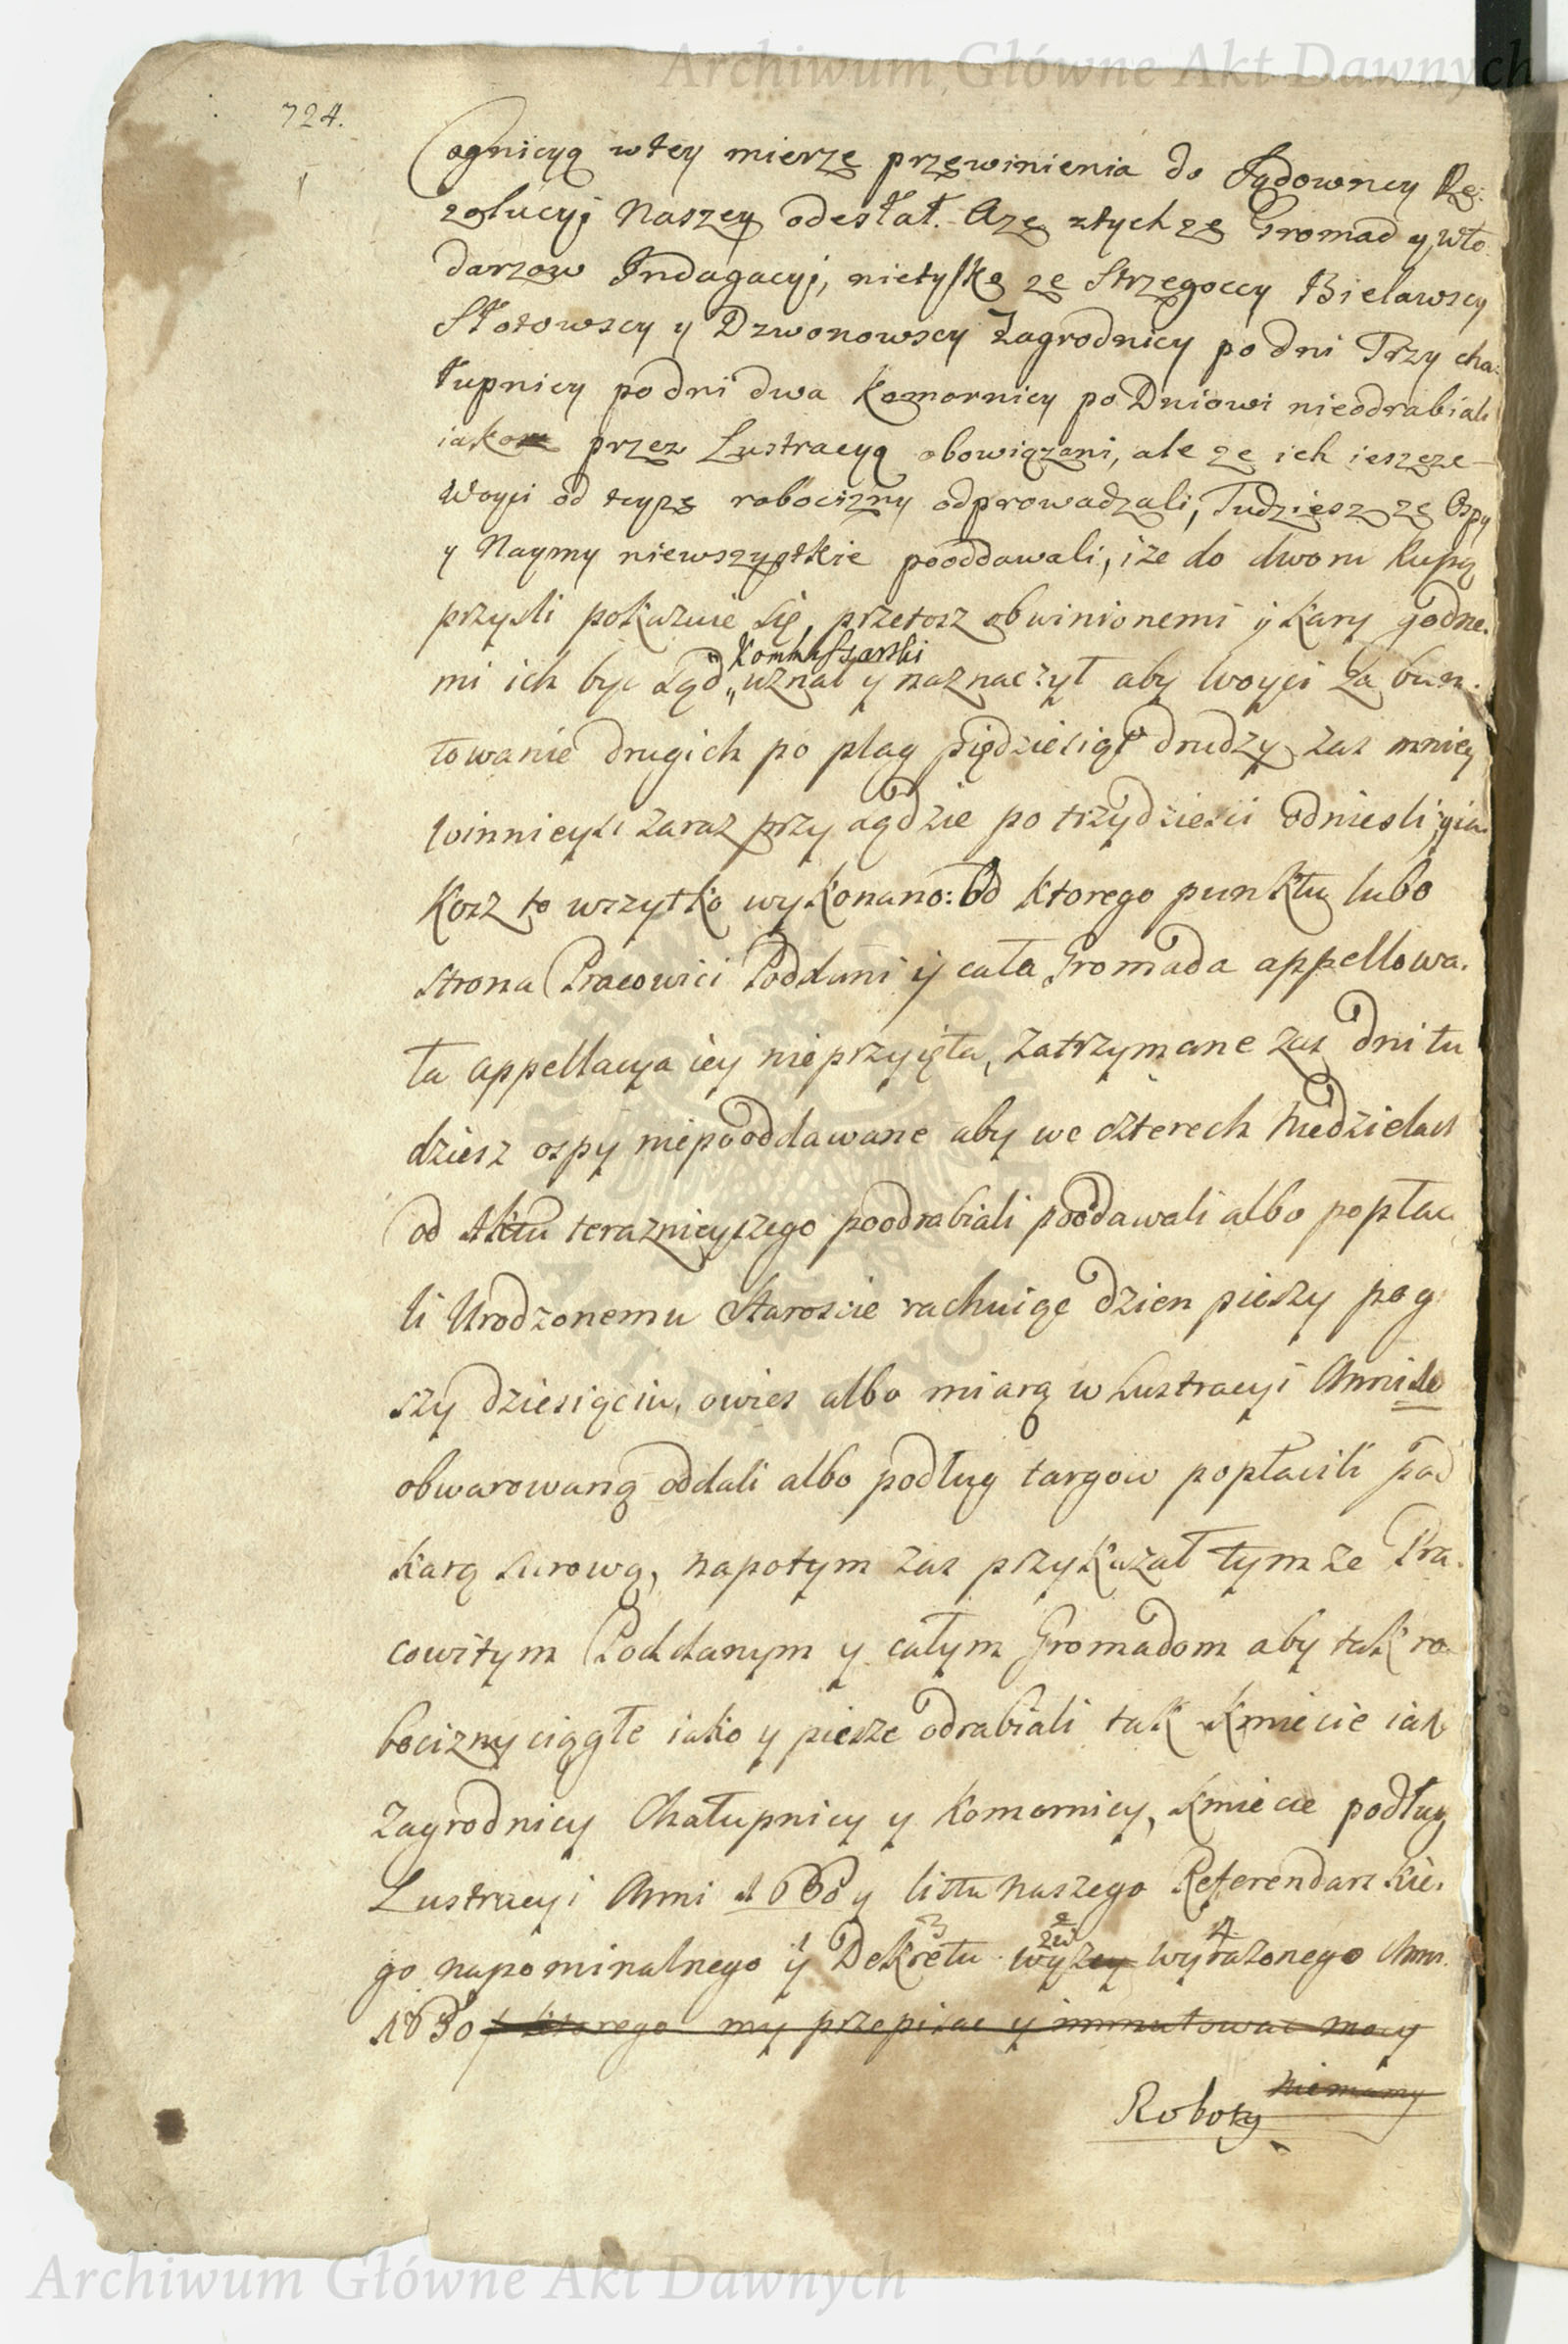 Archiwum Główne Akt Dawnych
724.
Cognicyą wtey mierzę przęwinienia do Sądowney Rę:
zolucyi Naszey odesłał. Azę ztychzę Gromad y Wło
darzow Indagacyi, nietylko zę Strzęgoccy Bielawscy
Słotowscy y Dzwonowscy Zagrodnicy po dni Trzy cha:
łupnicy po dni dwa Komornicy po Dniowi nieodrabiali
iako przez Lustracyą obowiązani, ale zę ich ieszcze
Woyci od teyzę robocizny odprowadzali, Tudziesz zę Ospy
y Naymy niewszystkie pooddawali, iże do dworu kupą
przyśli pokazuie się, przetosz obwinionemi ÿ kary godne.
Kommissarski
mi ich być Sąd „ uznał y naznaczył aby Woyci za bun.
towanie drugich po plag piędziesiąt drudzy zas mniey
winnieysi zaraz przy Sądzie po trzydziesci odniesli, yia
kosz to wszytko wykonano: Od ktorego punktu lubo
strona Pracowici Poddani ÿ cała Gromada appellowa.
ła appellacya iey nieprzyięta, zatrzymane zas dni tu
dziesz ospy niepooddawane aby we czterech Niedzielach
od Aktu teraznieyszego poodrabiali pooddawali albo popłac
li Urodzonemu Staroscie rachuiąc dzien pieszy po g
szy dziesięciu, owies albo miarą w Lustracyi Anni
obwarowaną oddali albo podług targow popłacili pod
karą surową, napotym zas przykazał tymze Pra.
cowitym Poddanym y całym Gromadom aby tak ro
bocizny ciągłe iako y piesze odrabiali tak Kmiecie iak
Zagrodnicy Chałupnicy y Komornicy, Kmiecie podług
Lustracyi Anni 1660 y listu Naszego Referendarskie.
3 2 4
go napominalnego ÿ Dekretu wyzey wyrazonego Anni
1630 ktorego my przepisac y immutowac mocy
niemamy
Roboty
Archiwum Główne Akt Dawnych